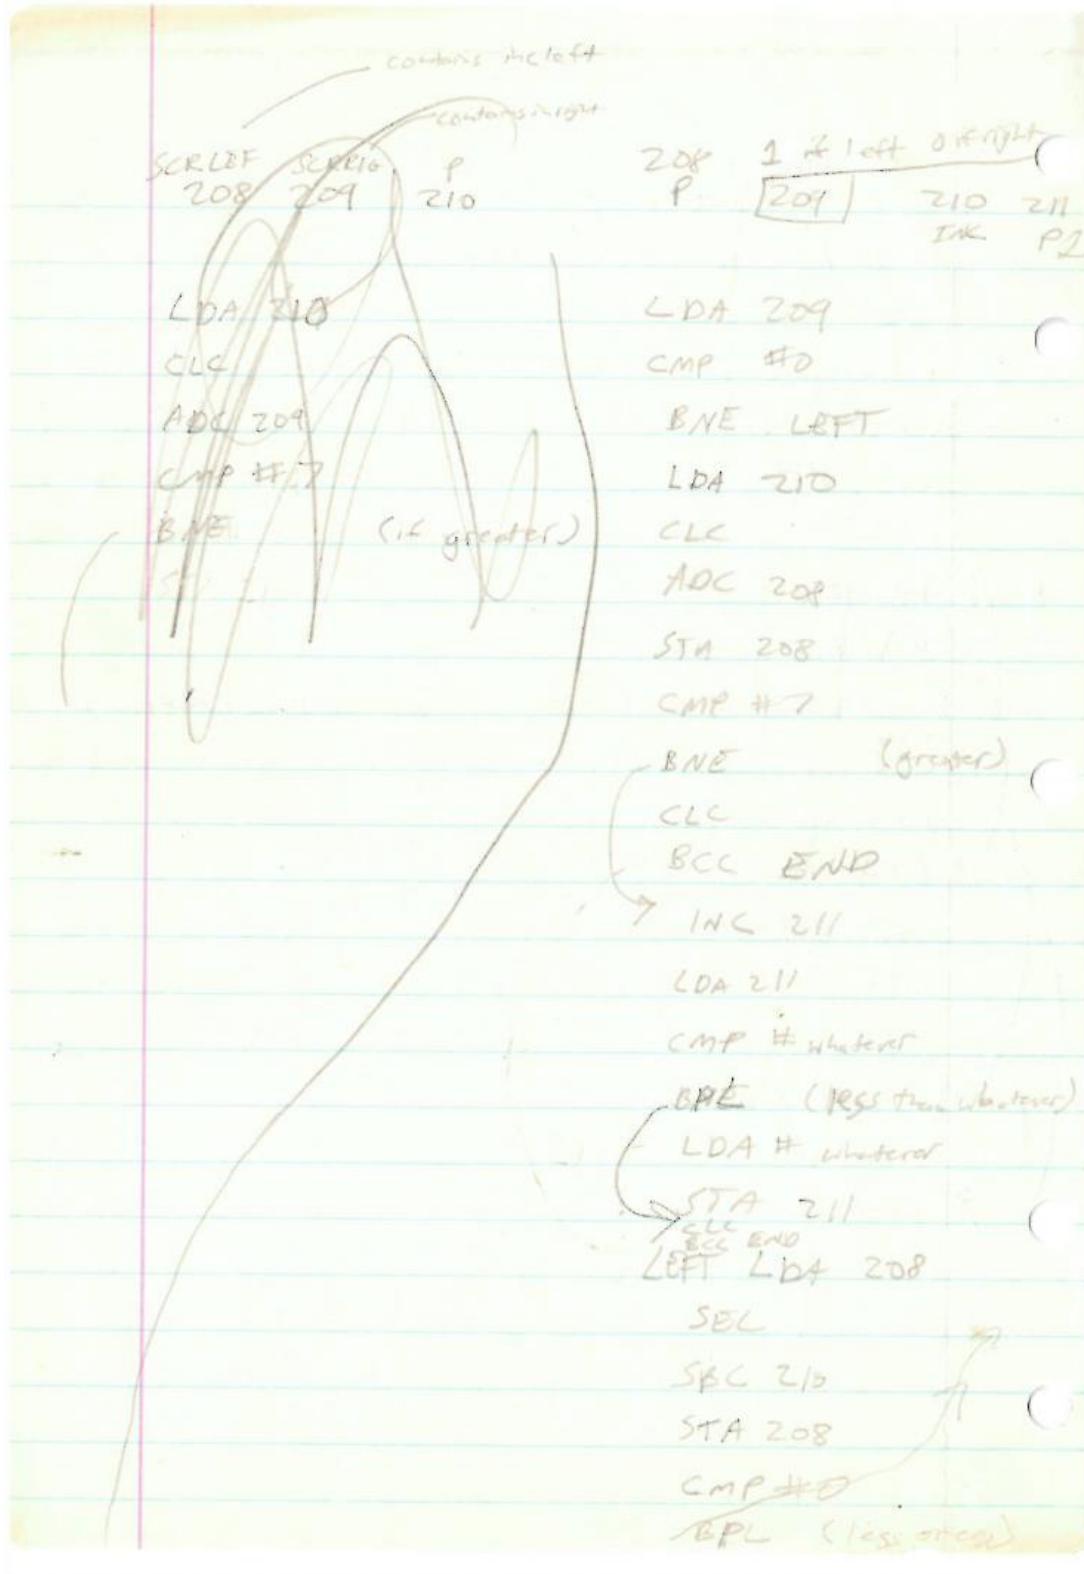 contains inc left
contains inc right
SCRLEF SCRRIG P
208 209 210
LDA 210
CLC
ADC 209
CMP #7
BNE (if greater)
208 1 if left 0 if right
P 209 210 211
INC P2
LDA 209
CMP #0
BNE LEFT
LDA 210
CLC
ADC 208
STA 208
CMP #7
BNE (greater)
CLC
BCC END
INC 211
LDA 211
CMP # whatever
(less than whatever)
LDA # whatever
STA 211
CLC
BCC END
LEFT LDA 208
SEC
SBC 210
STA 208
CMP #0
BPL (less or